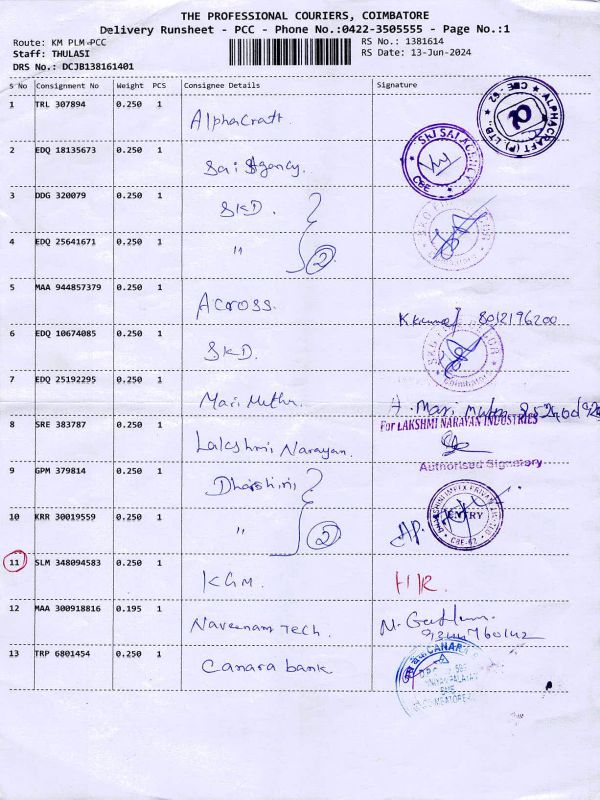 THE PROFESSIONAL COURIERS, COIMBATORE
Delivery Runsheet - PCC - Phone No.:0422-3505555 - Page No.:1
Route: KM PLM-PCC
Staff: THULASI
DRS No.: DCJB138161401
RS No.: 1381614
RS Date: 13-Jun-2024
S No Consignment No Weight PCS Consignee Details Signature
1 TRL 307894 0.250 1 Alphacraft.
ALPHACRAFT (P) LTD., CBE - 62
2 EDQ 18135673 0.250 1 Sai Agency.
SKJ SAI AGENCY CBE
3 DDG 320079 0.250 1 SKD.
4 EDQ 25641671 0.250 1 " 2
5 MAA 944857379 0.250 1 Across. 8012196200
6 EDQ 10674085 0.250 1 SKD.
7 EDQ 25192295 0.250 1 Mari Muthu. A. Mari Muthu
8 SRE 383787 0.250 1 Lakshmi Narayan.
For LAKSHMI NARAYAN INDUSTRIES
Authorised Signatory
9 GPM 379814 0.250 1 Dharshini
10 KRR 30019559 0.250 1 " 2
DHARSHINI IMPEX PRIVATE LIMITED ENTRY CBE-62
11 SLM 348094583 0.250 1 KGM. HR
12 MAA 300918816 0.195 1 Naveenam Tech.
13 TRP 6801454 0.250 1 Canara bank
CANARA